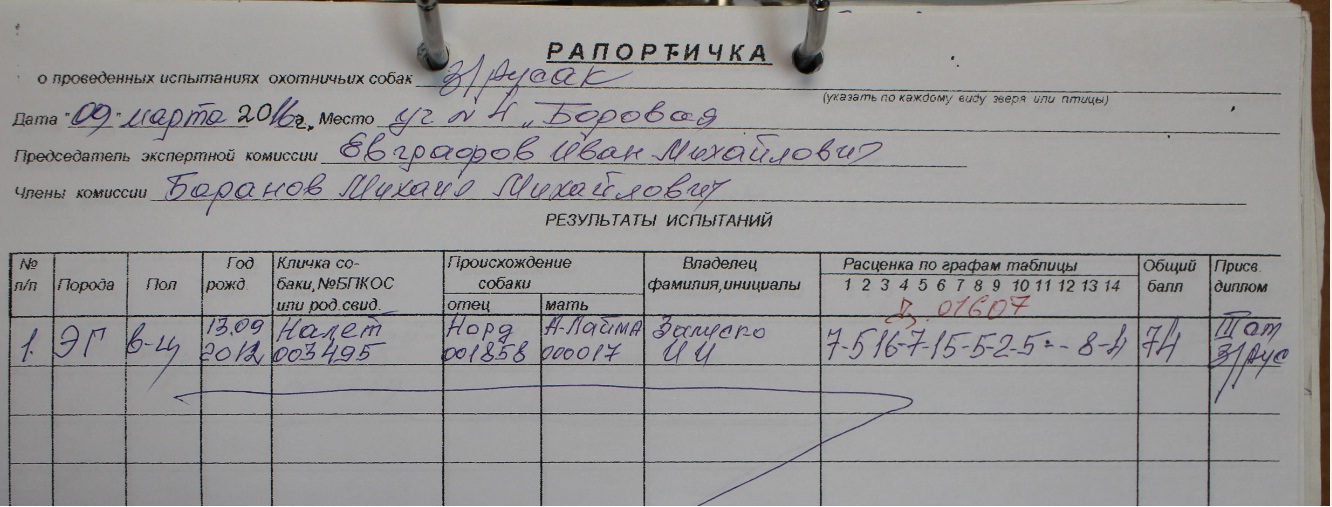 РАПОРТИЧКА
о проведенных испытаниях охотничьих собак З/русак
(указать по каждому виду зверя или птицы)
Дата "09" марта 2016г., Место уг N 4 „Боровая
Председатель экспертной комиссии Евграфов Иван Михайлович
Члены комиссии Баранов Михаил Михайлович
РЕЗУЛЬТАТЫ ИСПЫТАНИЙ
№ п/п Порода Пол Год рожд. Кличка собаки, №БПКОС или род.свид. Происхождение собаки отец мать Владелец фамилия, инициалы Расценка по графам таблицы 1 2 3 4 5 6 7 8 9 10 11 12 13 14 Общий балл Присв. диплом
Д. 01607
1. ЭГ в-ц 13.09 2012 Налет 003495 Норд 001858 А-Лайма 000017 И И 7-5 16-7-15-5-2-5 - - 8-4 74 III ст З/рус